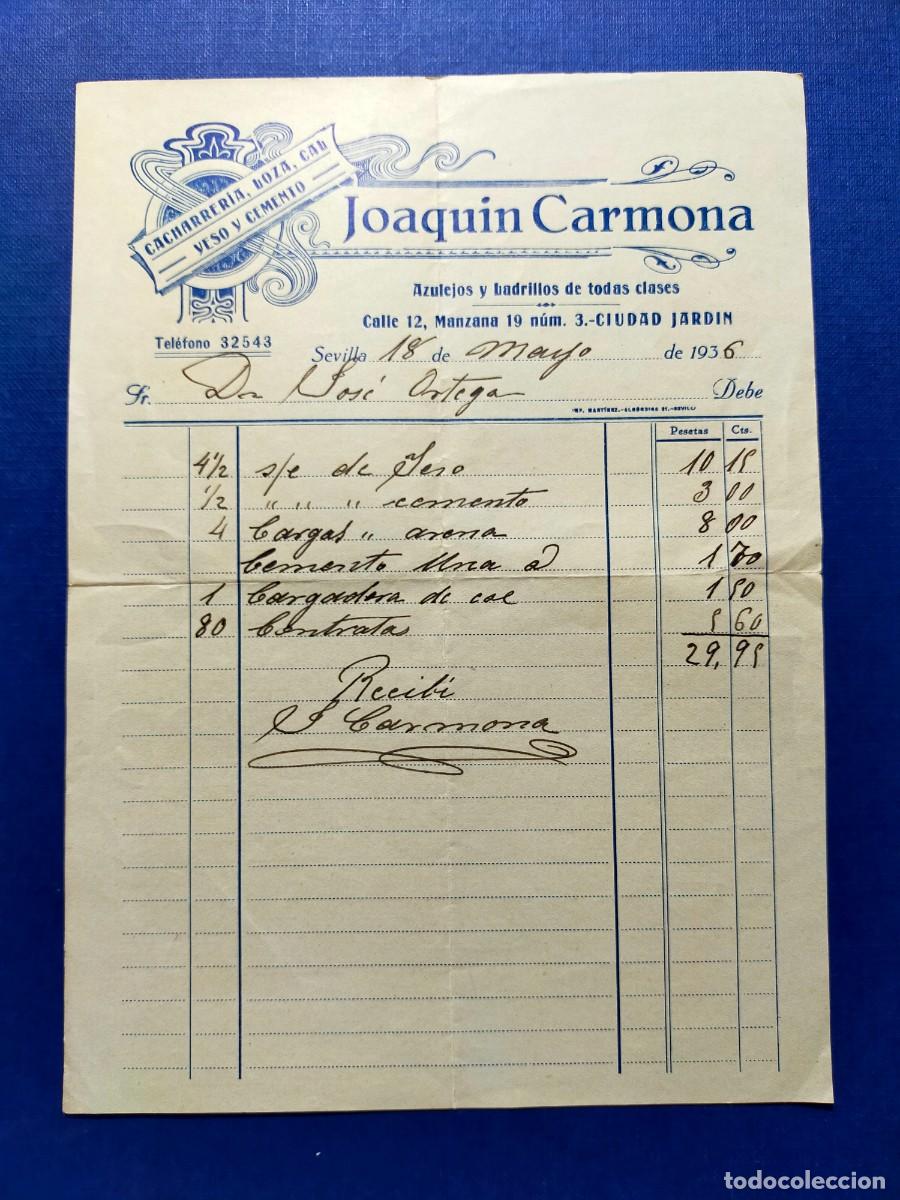 CACHARRERIA, LOZA, CAL
YESO Y CEMENTO
Joaquin Carmona
Azulejos y Ladrillos de todas clases
Calle 12, Manzana 19 núm. 3.-CIUDAD JARDIN
Teléfono 32543
Sevilla 18 de Mayo de 1936
Sr. Dn José Ortega Debe
IMP. MARTINEZ.-
Pesetas Cts.
4 1/2 s/c de Yeso 10 15
1/2 " " " cemento 3 00
4 Cargas " arena 8 00
Cemento Una @ 1 70
1 Cargadera de cal 1 50
80 Contratas 5 60
29,95
Recibi
J Carmona
todocoleccion